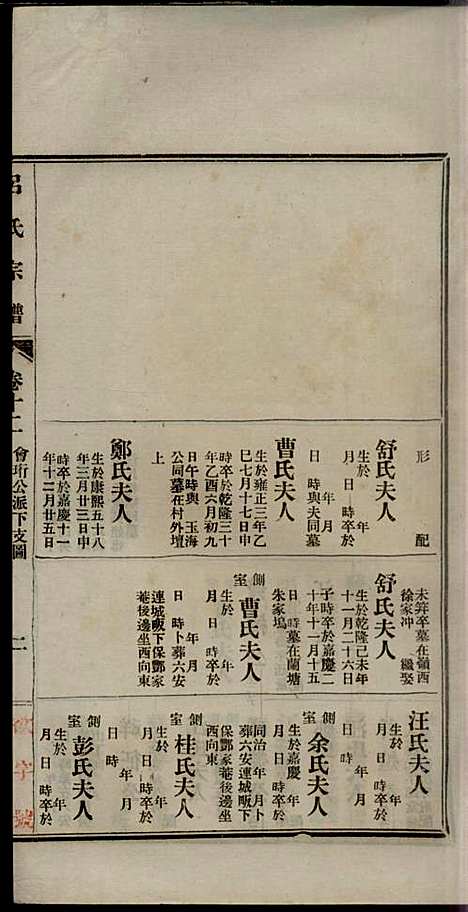 形配
舒氏夫人
生於　年
月　日　時卒於
年　月
日　時與夫同墓
曹氏夫人
生於雍正三年乙
巳七月十七日申
時卒於乾隆三十
年乙酉六月初九
日午時與　玉海
公同墓在村外壇
上
鄭氏夫人
生於康熙五十八
年三月廿三日申
時卒於嘉慶十一
年十二月廿五日
未笄卒墓在嶺西
徐家冲　繼娶
舒氏夫人
生於乾隆己未年
十一月二十六日
子時卒於嘉慶二
十年十一月十五
日　時墓在蘭塘
朱家塢
側室
曹氏夫人
生於　年
月　日　時卒於
年　月
日　時卜葬六安
連城畈下保鄧家
菴後邊坐西向東
汪氏夫人
生於　年
月　日　時卒於
年　月
日　時
側室
余氏夫人
生於嘉慶　年
月　日　時卒於
同治　年　月卜
葬六安連城畈下
保鄧家菴後邊坐
西向東
側室
桂氏夫人
生於　年
月　日　時卒於
年　月
日　時
側室
彭氏夫人
生於　年
月　日　時卒於
呂氏宗譜
卷十二
會珩公派下支圖
二
字號